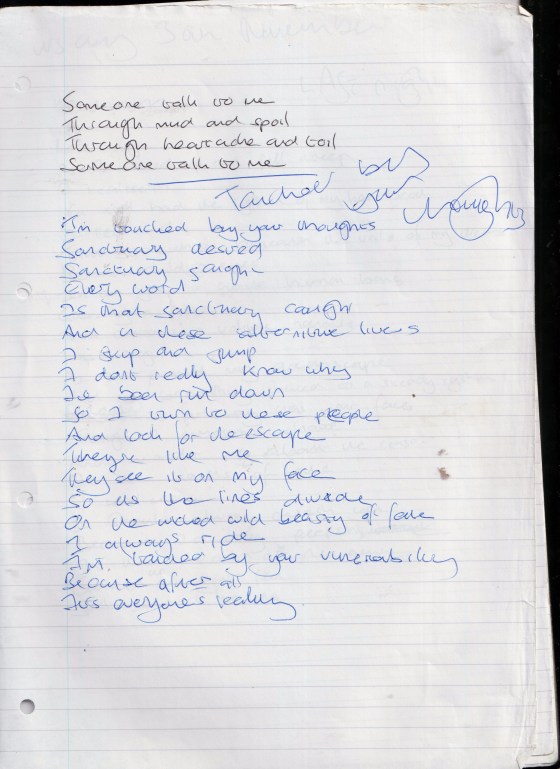 Someone talk to me
Through mud and spoil
Through heartache and toil
Someone talk to me
Touched by your
I'm touched by your thoughts
Sanctuary desired
Sanctuary sought
Every word
Is that sanctuary caught
And in these alternative lives
I skip and jump
I dont really know why
I've been put down
So I turn to these people
And look for the escape
They're like me
They see it on my face
So as the lines divide
On the wicked wild beasty of fate
I always ride
I'm touched by your vunerability
Because after all
It's everyone's reality